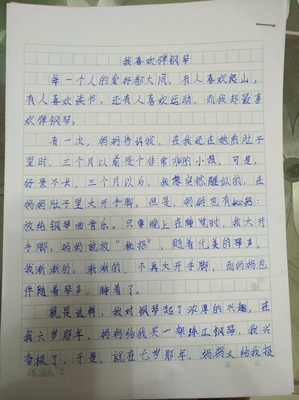 我喜欢弹钢琴
每一个人的爱好都大同。有人喜欢爬山,
有人喜欢读书,还有人喜欢运动,而我却最喜
欢弹钢琴。
有一次,妈妈告诉我,在我还在她的肚子
里时,三个月以前是个非常乖的小孩,可是,
好景不长,三个月以后,我像突然醒似的,在
妈妈肚子里大开手脚,但是,妈妈也有秘招:
放纯钢琴曲音乐。只要晚上在睡觉时,我大开
手脚,妈妈就放“秘招”,随着优美的琴声,
我渐渐的,渐渐的,不再大开手脚,而妈妈也
伴随着琴声,睡着了。
就是这样,我对钢琴起了浓厚的兴趣,在
我六岁那年,妈妈给我买一架珠江钢琴,我兴
奋极了,于是,就在七岁那年,妈妈又给我报